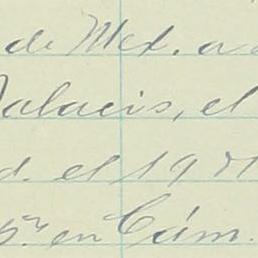 de Mex. a
Palacio, el
d. el 19
en Cám.